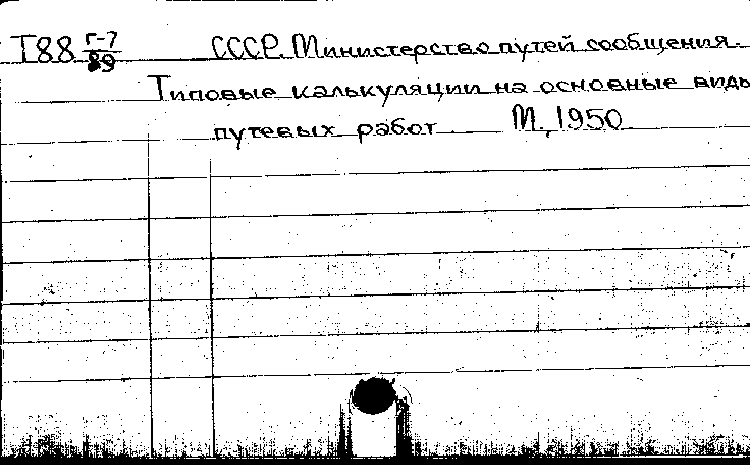 Т88 Г-7/89 СССР. Министерство путей сообщения.
Типовые калькуляции на основные виды
путевых работ М., 1950